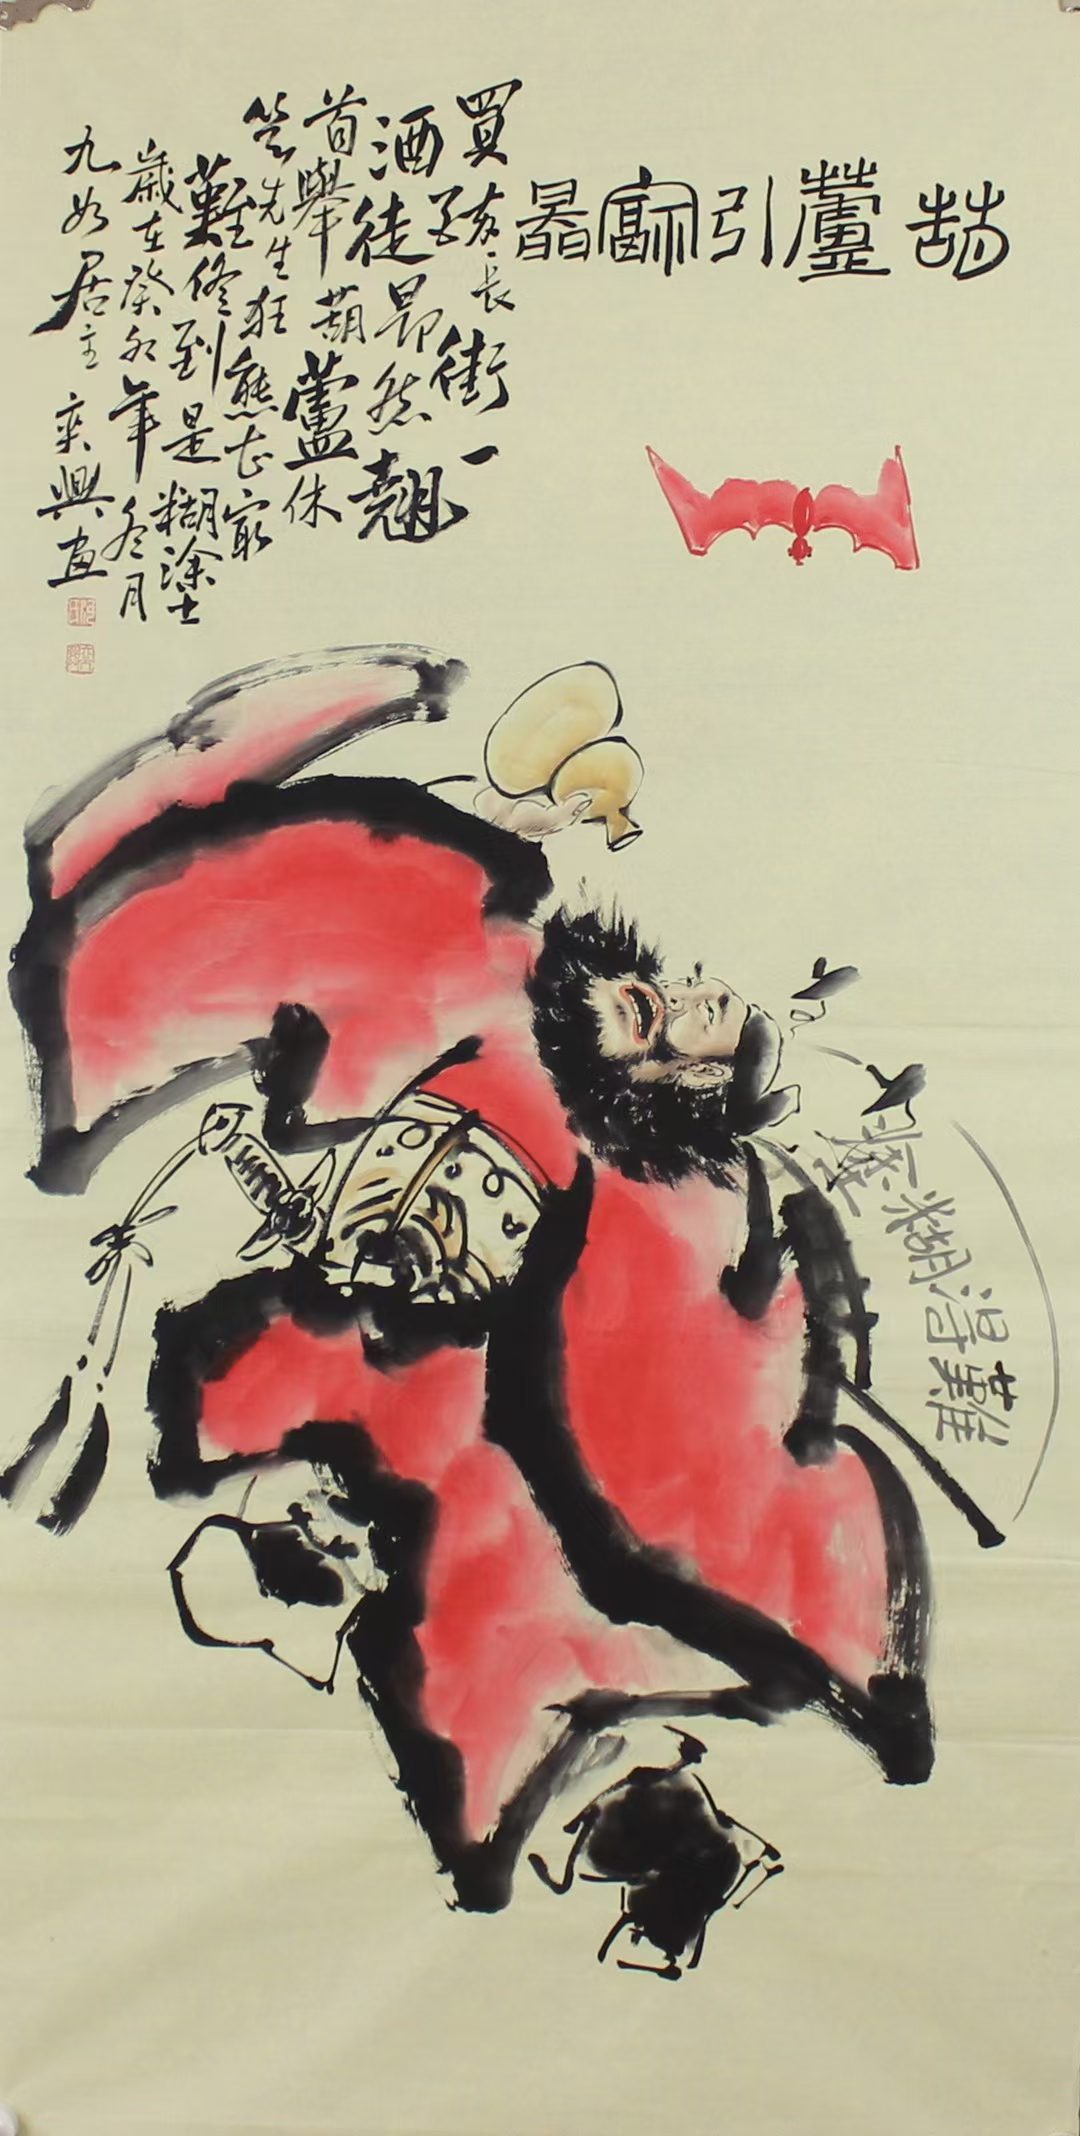 葫蘆引福圖
買醉長街一
酒徒昂然翹
首舉葫蘆休
笑先生狂態 最
難修到是糊塗
歲在癸卯年冬月
九如居主 奕興畫
難得糊塗